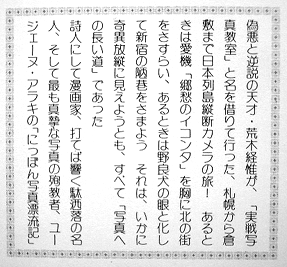 偽悪と逆説の天才・荒木経惟が、「実戦写
真教室」と名を借りて行った、札幌から倉
敷まで日本列島縦断カメラの旅！あると
きは愛機「郷愁のイコンタ」を胸に北の街
をさすらい、あるときは野良犬の眼と化し
て新宿の陋巷をさまよう　それは、いかに
奇異放縦に見えようとも、すべて「写真へ
の長い道」であった
詩人にして漫画家、打てば響く駄洒落の名
人、そして最も真摯な写真の殉教者、ユー
ジェーヌ・アラキの「にっぽん写真漂流記」